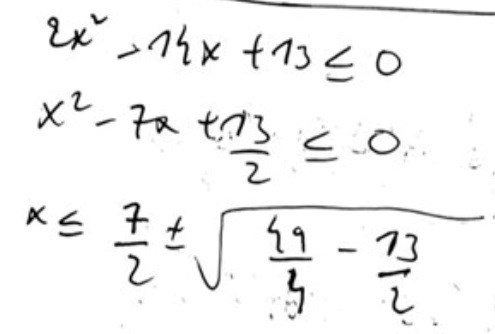 2x² - 14x + 13 ≤ 0
x² - 7x + 13/2 ≤ 0
x ≤ 7/2 ± √(49/4 - 13/2)